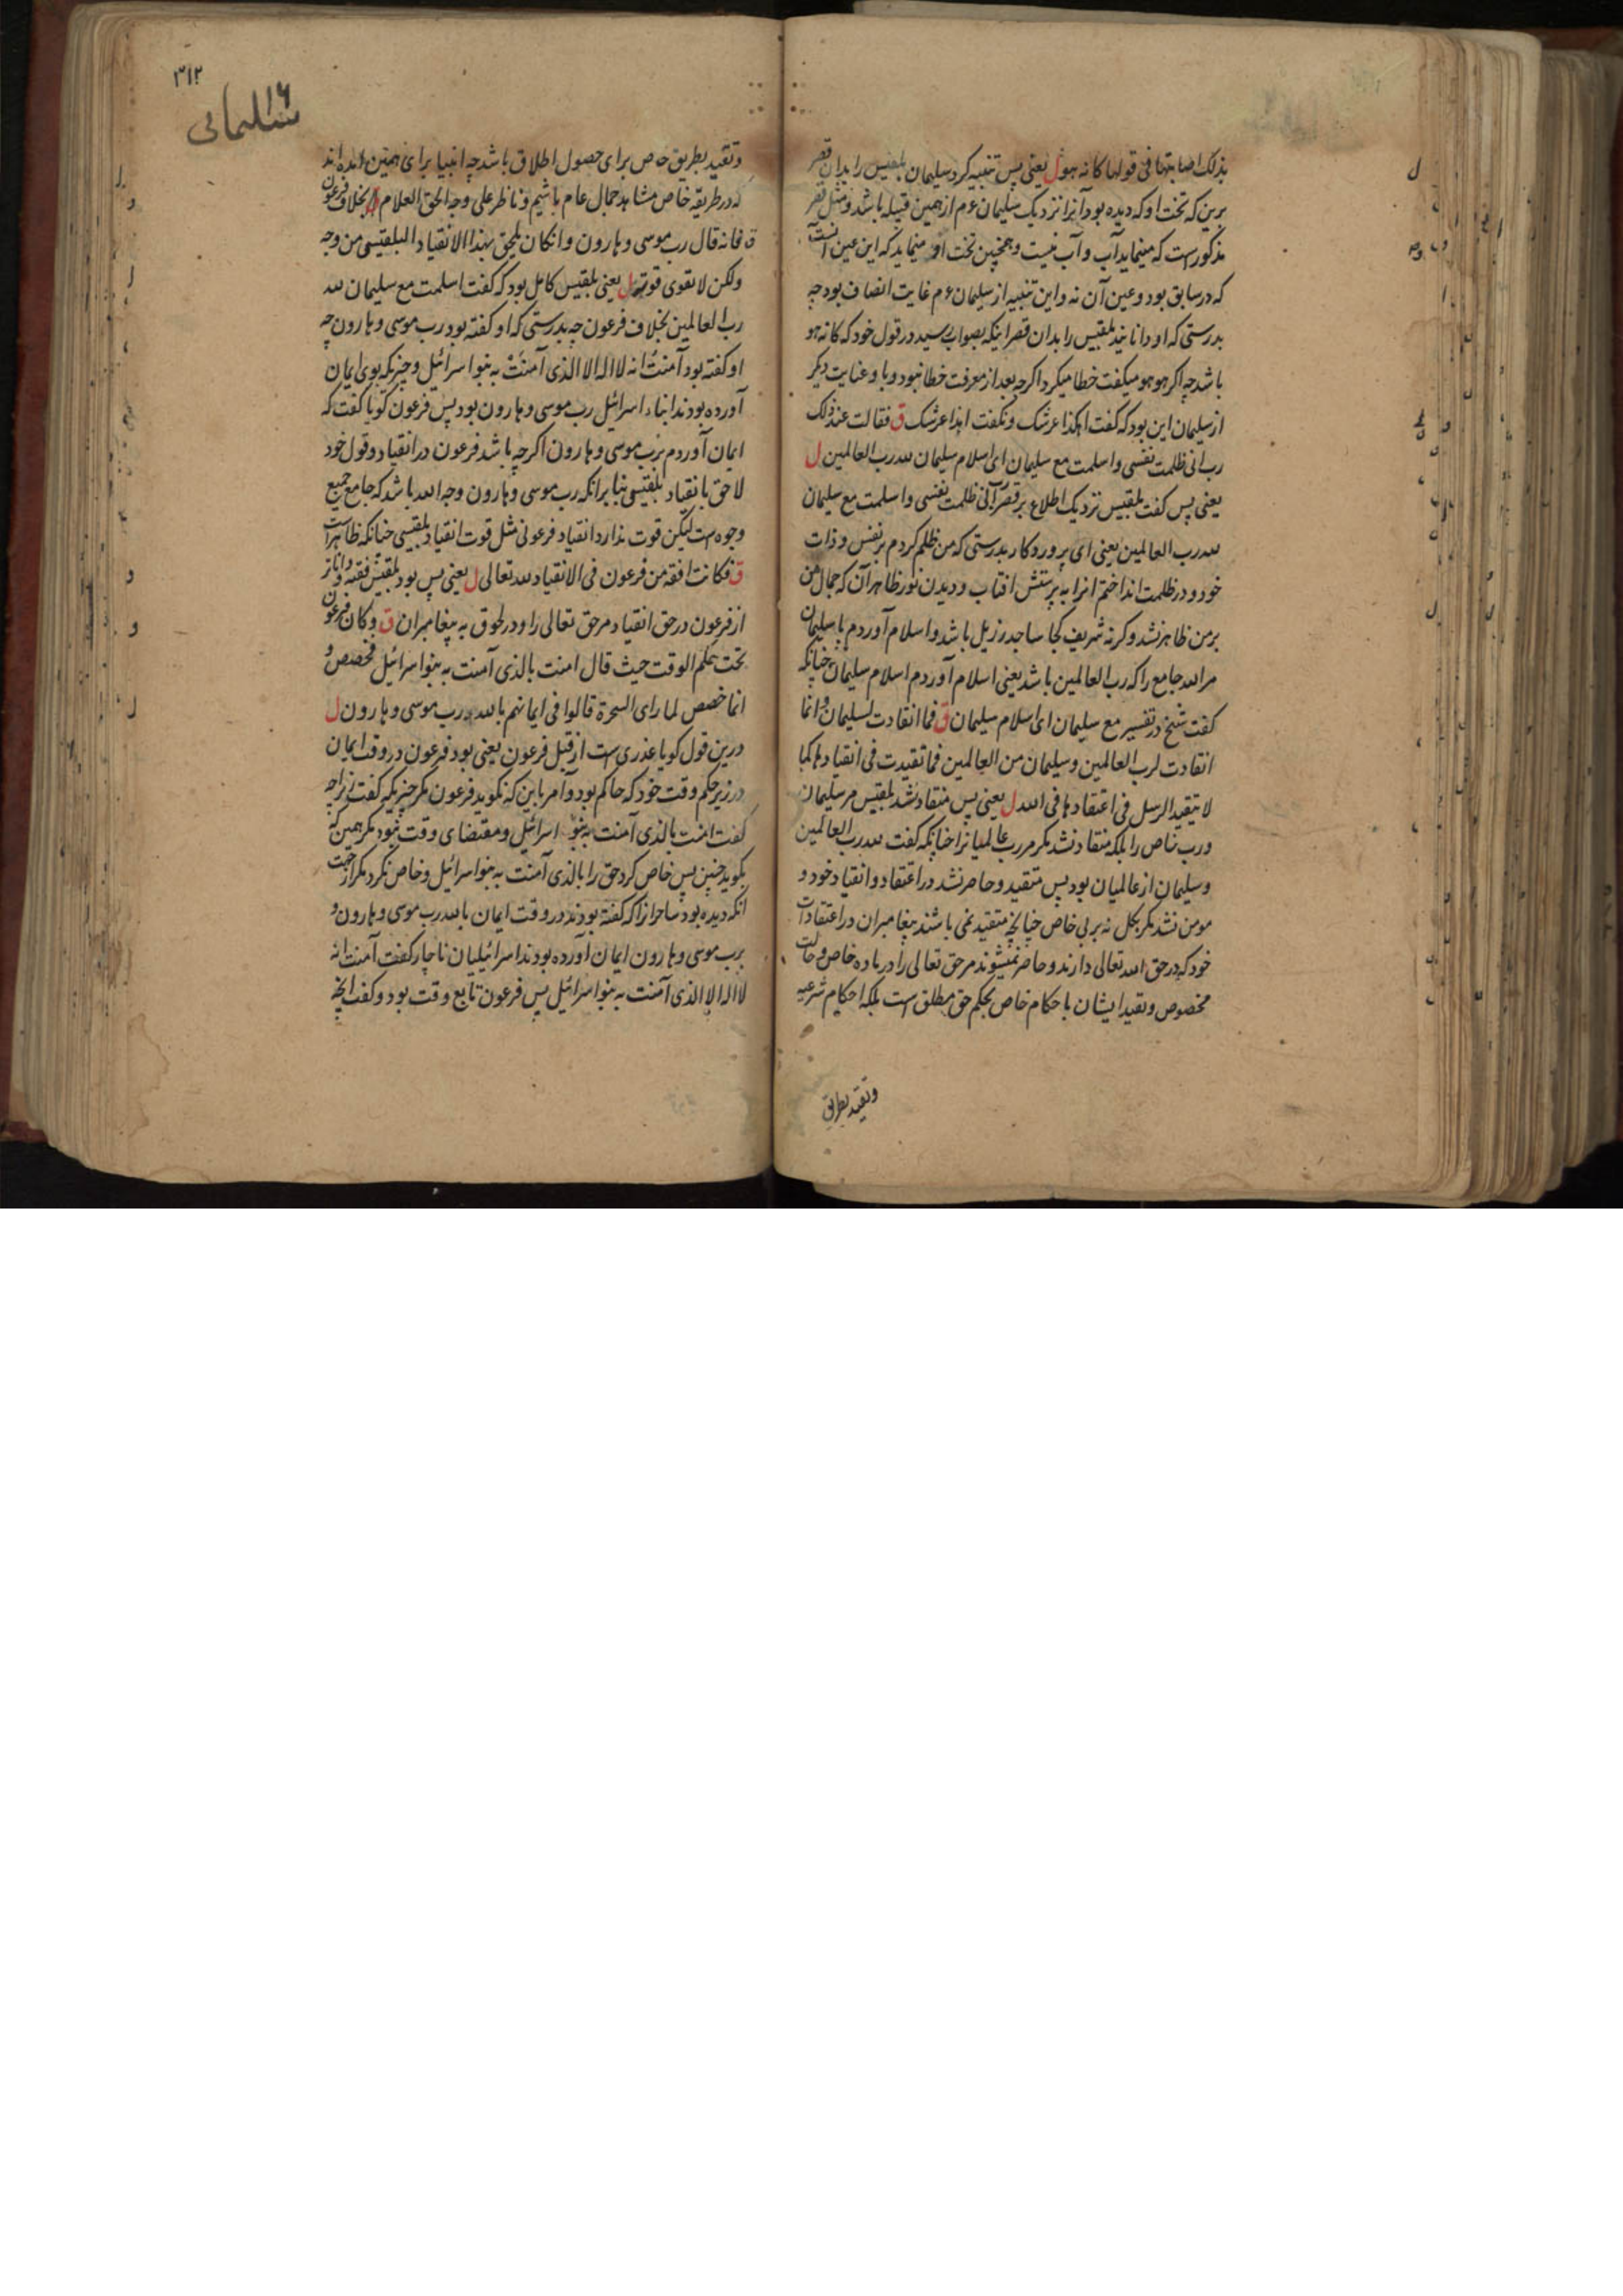 بذلک اصابتها فی قولها کانه هو ل یعنی پس تنبیه کرد سلیمان بلقیس را بدان قصر
برین که تخت او که دیده بود آنرا نزدیک سلیمان ع م ازهمین قبیله باشد و مثل قصر
مذکورست که مینماید آب و آب نیست و همچنین تخت او مینماید که این عین آنست
که در سابق بود و عین آن نه و این تنبیه از سلیمان ع م غایت انصاف بود چه
بدرستی که او دانانید بلقیس را بدان قصر اینکه بصواب رسید در قول خود که کانه هو
باشد چه اکر هو هو میکفت خطا میکرد اکرچه بعد از معرفت خطا نبود و با و عنایت دیکر
از سلیمان این بود که کفت اهکذا عرشک و نکفت اهذا عرشک ق فقالت عند ذلک
رب انی ظلمت نفسی و اسلمت مع سلیمان ای اسلام سلیمان لله رب العالمین ل
یعنی پس کفت بلقیس نزدیک اطلاع بر قصر رب انی ظلمت نفسی و اسلمت مع سلیمان
لله رب العالمین یعنی ای پروردکار بدرستی که من ظلم کردم بر نفس و ذات
خود و در ظلمت انداختم انرا به پرستش افتاب و دیدن نور ظاهر آن که جمال من
بر من ظاهر نشد و کرنه شریف کجا ساجد رزیل باشد و اسلام آوردم با سلیمان
مر الله جامع را که رب العالمین باشد یعنی اسلام آوردم اسلام سلیمان چنانکه
کفت شیخ در تفسیر مع سلیمان ای اسلام سلیمان ق فما انقادت لسلیمان و انما
انقادت لرب العالمین و سلیمان من العالمین فما تقیدت فی انقیادها کما
لا یتقید الرسل فی اعتقادها فی الله ل یعنی پس منقاد نشد بلقیس مر سلیمان
و رب خاص را بلکه منقاد نشد مکر مر رب عالمیانرا چنانکه کفت لله رب العالمین
و سلیمان از عالمیان بود پس متقید و حاصر نشد در اعتقاد و انقیاد خود و
مومن نشد مکر بکل نه بربی خاص چنانچه متقید نمی باشند پیغامبران در اعتقادات
خود که در حق الله تعالی دارند و حاصر نمیشوند مر حق تعالی را در ماده خاص و حالت
مخصوص و تقید ایشان با حکام خاص بحکم حق مطلق است بلکه احکام شرعیه
و تقید بطریق
۳۱۲
۱۶
سلیمانی
و تقید بطریق خاص برای حصول اطلاق باشد چه انبیا برای همین آمده اند
که در طریقه خاص مشاهد جمال عام باشیم و ناظر علی وجه الحق العلام ق بخلاف فرعون
فانه قال رب موسی و هارون و ان کان یلحق بهذا الانقیاد البلقیسی من وجه
ولکن لا تقوی قوته ل یعنی بلقیس کامل بود که کفت اسلمت مع سلیمان لله
رب العالمین بخلاف فرعون چه بدرستی که او کفته بود رب موسی و هارون چه
او کفته بود آمنت انه لا اله الا الذی آمنت به بنوا سرائیل و چیزیکه بوی ایمان
آورده بودند ابناء اسرائیل رب موسی و هارون بود پس فرعون کویا کفت که
ایمان آوردم برب موسی و هارون اکرچه باشد فرعون در انقیاد و قول خود
لاحق بانقیاد بلقیسی بنا برانکه رب موسی و هارون وجه الله باشد که جامع جمیع
وجوه ست لیکن قوت ندارد انقیاد فرعونی مثل قوت انقیاد بلقیسی چنانکه ظاهر است
ق فکانت افقه من فرعون فی الانقیاد لله تعالی ل یعنی پس بود بلقیس فقیه و داناتر
از فرعون در حق انقیاد مر حق تعالی را و در لحوق به پیغامبران ق و کان فرعون
تحت حکم الوقت حیث قال امنت بالذی آمنت به بنوا سرائیل فخصص و
انما خصص لما رای السحرة قالوا فی ایمانهم بالله رب موسی و هارون ل
درین قول کویا عذری ست از قبل فرعون یعنی بود فرعون در وقت ایمان
در زیر حکم وقت خود که حاکم بود و آمر باین که نکوید فرعون مکر چیزیکه کفت انرا چه
کفت امنت بالذی آمنت به بنو اسرائیل و مقتضای وقت نبود مکر همین که
بکوید چنین پس خاص کرد حق را بالذی آمنت به بنوا سرائیل و خاص نکرد مکر از جهت
انکه دیده بود ساحرانرا که کفته بودند در وقت ایمان بالله رب موسی و هارون و
برب موسی و هارون ایمان آورده بودند اسرائیلیان ناچار کفت آمنت انه
لا اله الا الذی آمنت به بنوا سرائیل پس فرعون تابع وقت بود و کفت انچه